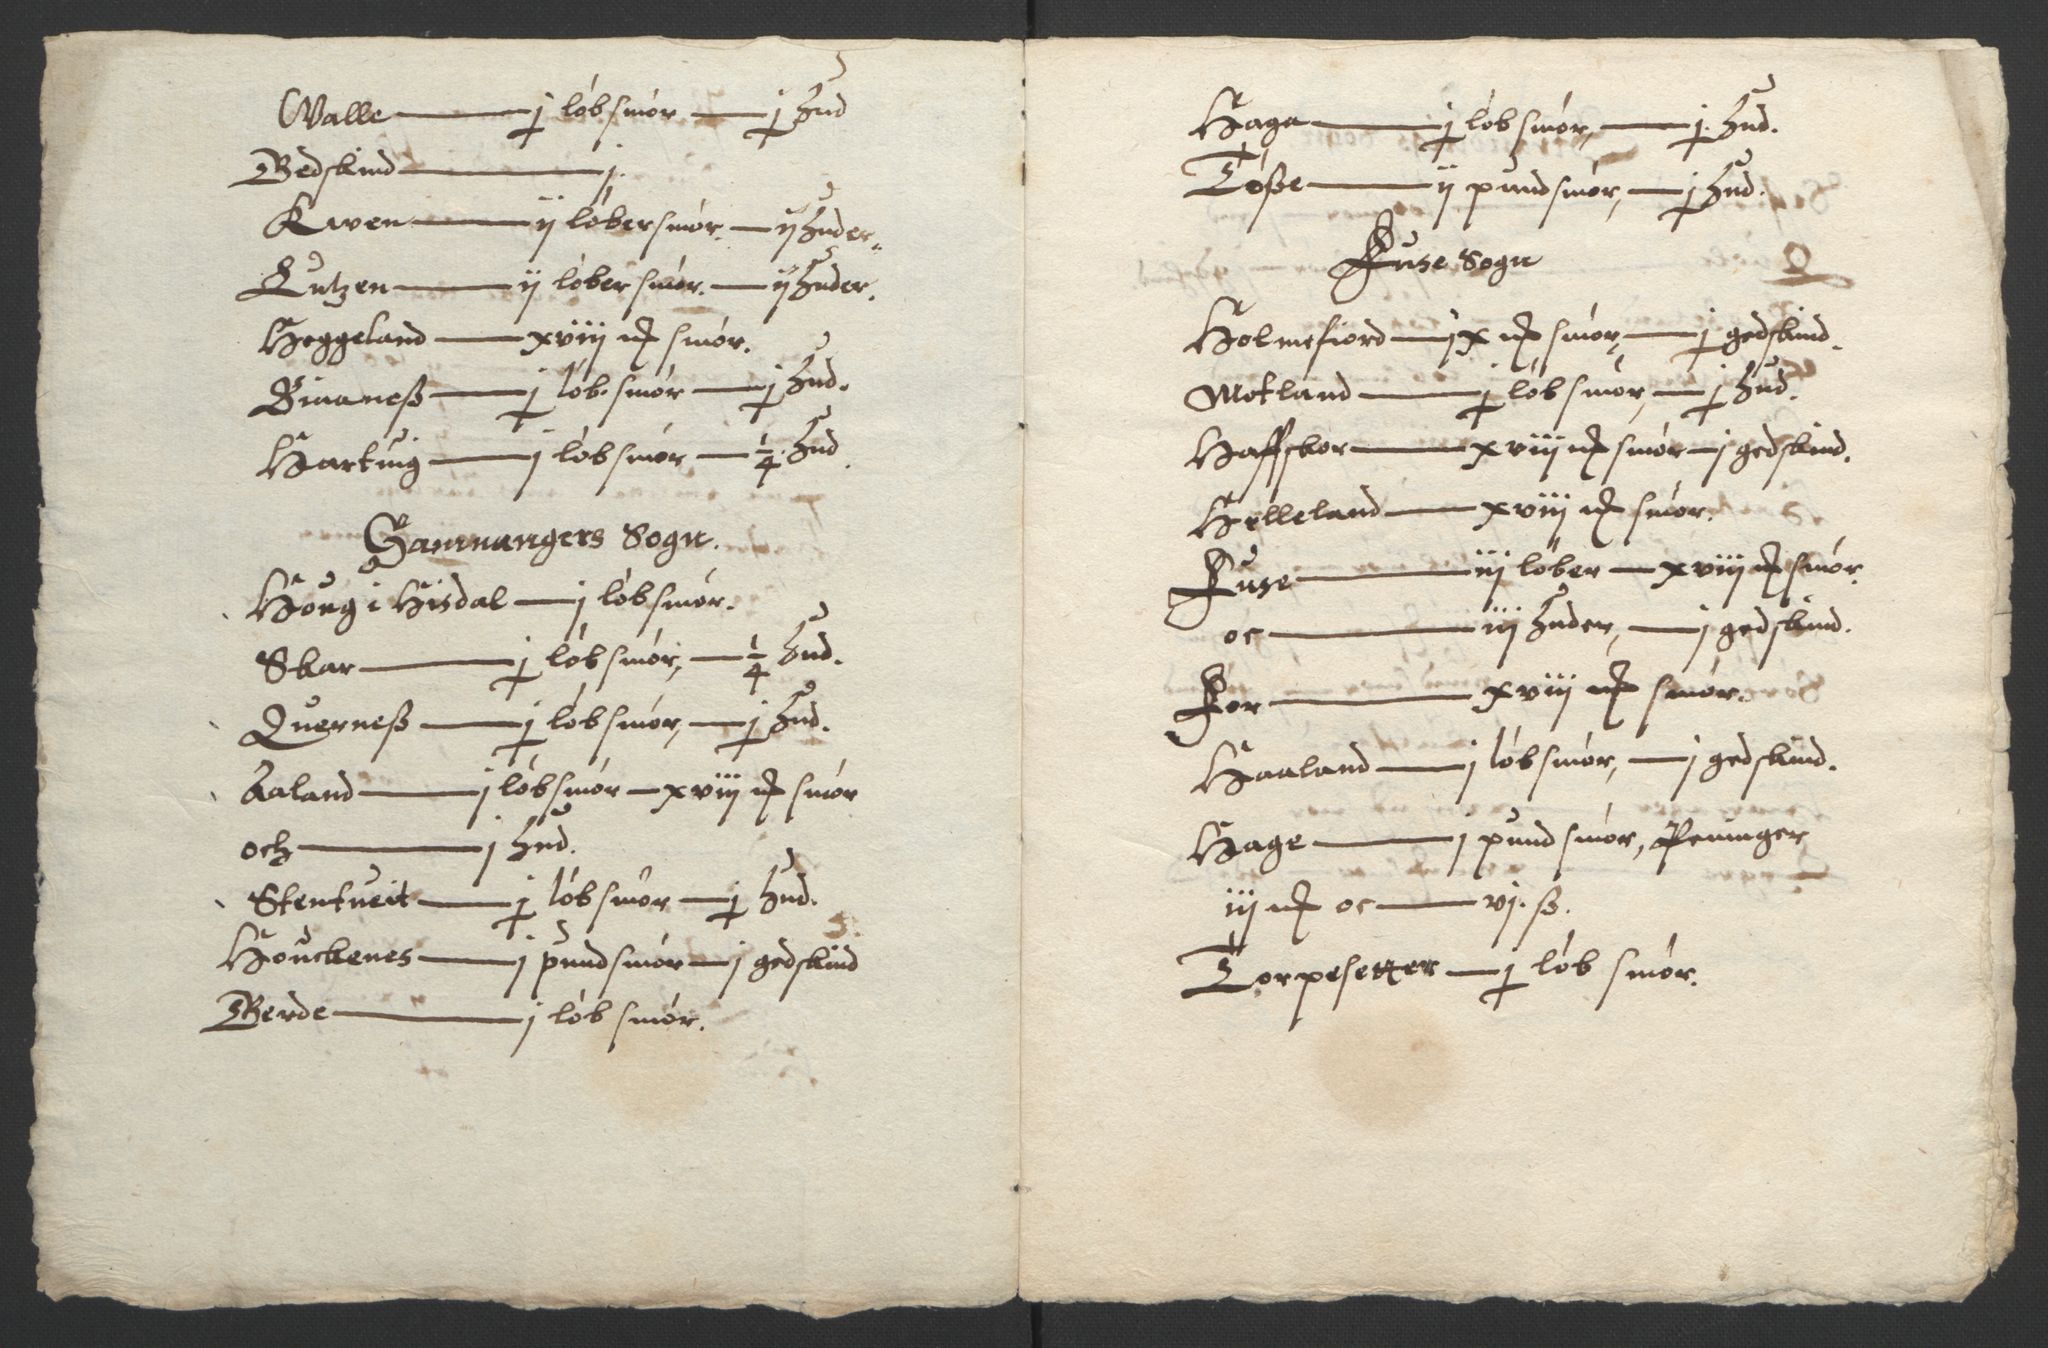 Walle — j løbsmør — j hud
Bedskind — j.
Kwen — ij løbersmør — ij huder.
Lutzen — ij løber smør. — ij huder.
Heggeland — xviij mk smør.
Gimaneß — j løb smør — j hud.
Hartuig — j løbsmør — 1/4 hud
Samnangers Sogn.
Høug i Hisdal — j løbsmør.
Skar — j løbsmør, — 1/4 hud.
Querneß — j løbsmør, — j hud.
Aaland — j løbsmør — xviij mk smør
och — j hud.
Stentueit — j løbsmør — j hud.
Houckenes — j pundsmør — j gedskind
Berde — j løb smør.
Haga — j løb smør, — j. hud.
Tøße — ij pundsmør, — j hud.
Fuse Sogn
Holmefiord — ix mk smør, — j gedskind.
Motland — j løb smør, — j hud.
Haffskor — xviij mk smør — j gedskind.
Helleland — xviij mk smør.
Fuse — iij løber — xviij mk smør.
oc — iij huder, — j gedskind.
For — xviij mk smør.
Haaland — j løbsmør, — j gedskind.
Hage — j pund smør, Peninger
iij mk oc — vj. ß.
Torpesetter — j løb smør.